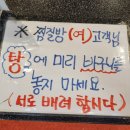 ※ 찜질방 (여) 고객님
탕에 미리 바구니를
놓지 마세요.
(서로 배려 합시다)